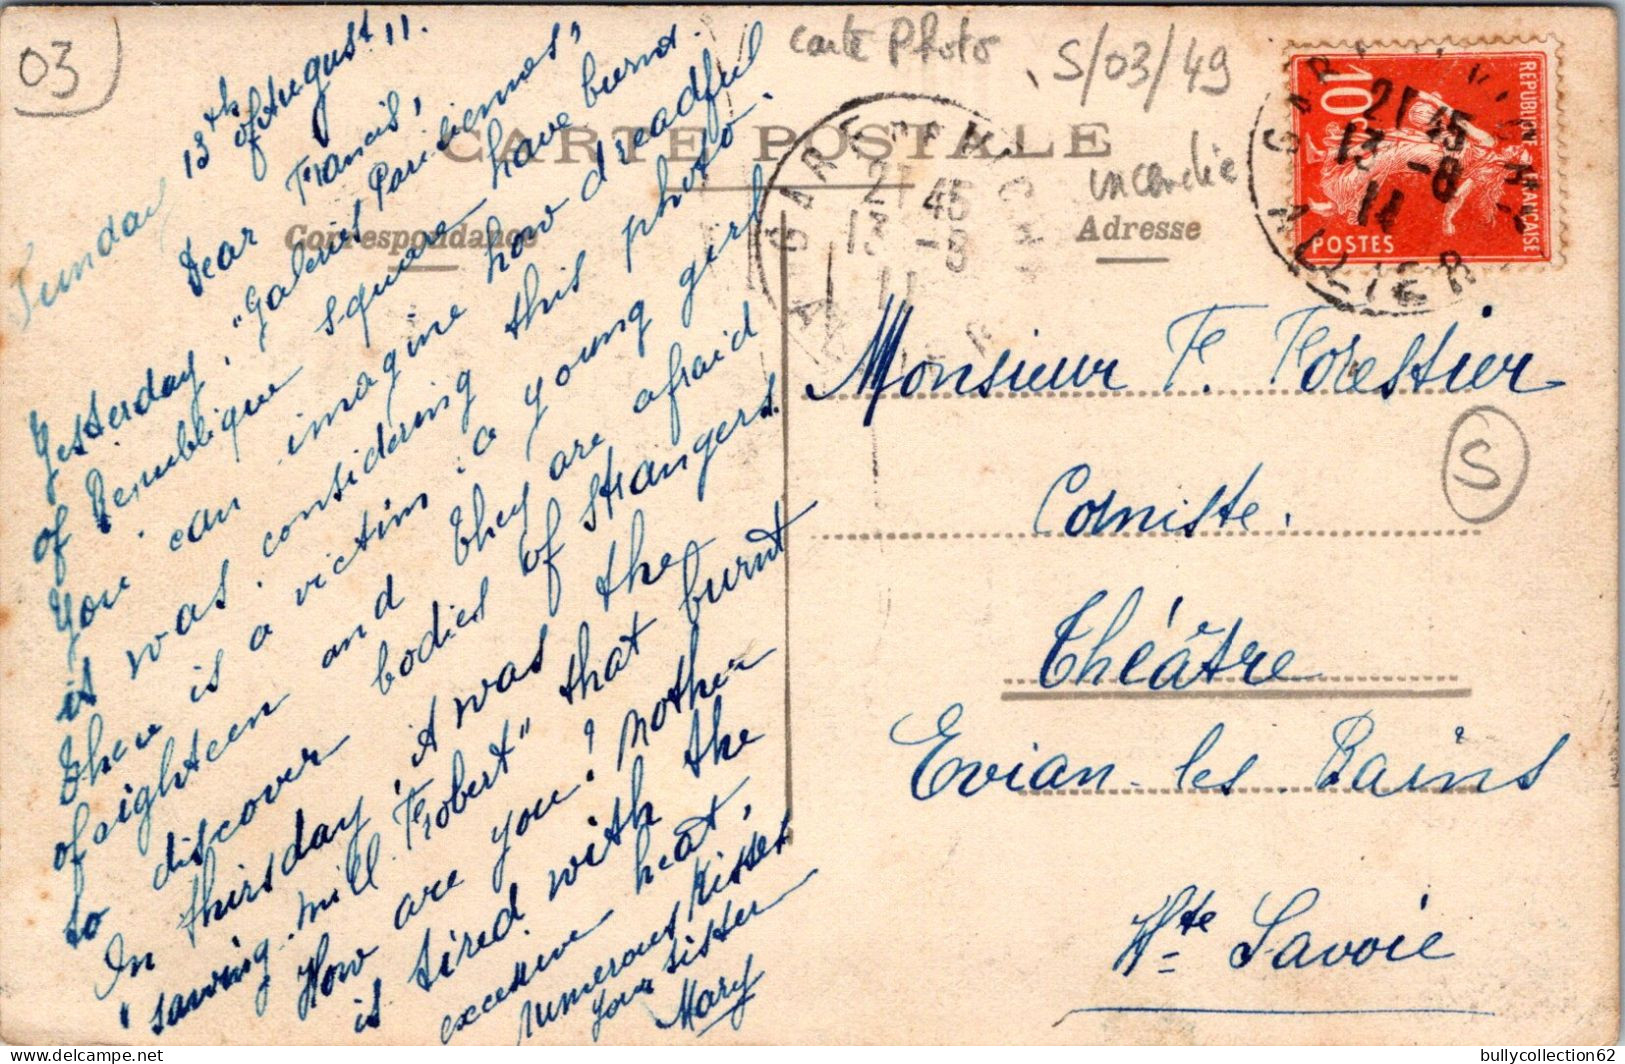 03
carte Photo
S/03/49
incendie
CARTE POSTALE
Correspondance
Adresse
REPUBLIQUE FRANÇAISE
10c
POSTES
21 45
13 -8
11
21 45
13 -8
11
ALLIER
S
Sunday 13th of August 11.
Dear Francis,
Yesterday, "Galeries Parisiennes,"
of Republique square have burnt.
You can imagine how dreadful
it was considering this photo.
There is a victim: a young girl
of eighteen and they are afraid
to discover bodies of strangers.
In thirsday, it was the
"sawing-mill Robert" that burnt
How are you? Mother
is tired with the
excessive heat,
numerous kisses
your sister
Mary
Monsieur F. Forestier
Corniste.
Théâtre
Evian-les-Bains
Hte Savoie
bullycollection62